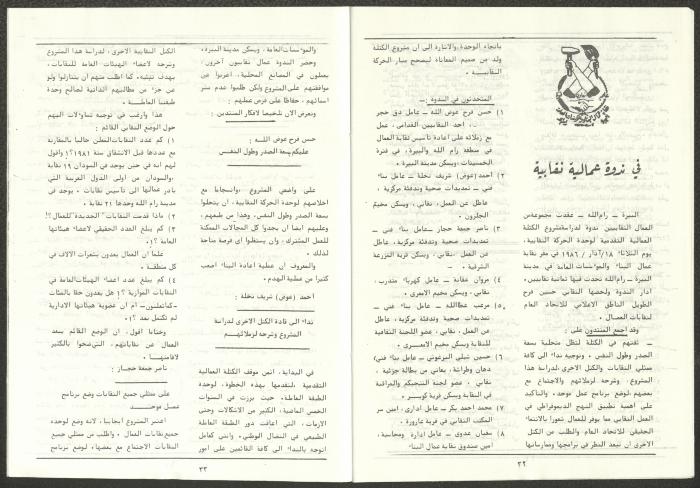 في ندوة عمالية نقابية
البيرة ــ رام الله ــ عقدت مجموعة من
العمال النقابيين ندوة لدراسة مشروع الكتلة
العمالية التقدمية لوحدة الحركة النقابية،
يوم الثلاثاء ١٨/آذار / ١٩٨٦ في مقر نقابة
عمال البناء والمؤسسات العامة في مدينة
البيرة ــ رام الله تحدث فيها ثمانية نقابيين،
ادار الندوة ولخصها النقابي حسن فرح
الطويل الناطق الاعلامي للاتحاد العام
لنقابات العمال.
وقد اجمع المنتدون على :
ــ ثقتهم في الكتلة لتظل متحلية بسعة
الصدر وطول النفس، وتوجيه نداء الى كافة
ممثلي النقابات والكتل الاخرى، لدراسة هذا
المشروع، وشرحه لزملائهم والاجتماع مع
بعضهم، لوضع برنامج عمل موحد، والتأكيد
على اهمية تطبيق النهج الديموقراطي في
العمل النقابي مما يوفر للعمال شعورا بالانتماء
الحقيقي للاتحاد العام والطلب من الكتل
الاخرى ان تعيد النظر في برامجها وممارساتها
باتجاه الوحدة والاشارة الى ان مشروع الكتلة
ولد من صميم المعاناة ليصحح مسار الحركة
النقابية.
المتحدثون في الندوة :ــ
١) حسن فرح عوض الله ــ عامل دق حجر
، احد النقابيين القدامى، عمل
مع زملائه على اعادة تأسيس نقابة العمال
في منطقة رام الله والبيرة، في فترة
الخمسينات، ويسكن مدينة البيرة.
٢) احمد (عوض) شريف نخلة ــ عامل بناء
فني ــ تمديدات صحية وتدفئة مركزية،
عاطل عن العمل، نقابي، ويسكن مخيم
الجلزون.
٣) ناصر جمعة حجاز ــ عامل بناء فني ــ
تمديدات صحية وتدفئة مركزية، عاطل
عن العمل، نقابي، ويسكن قرية المزرعة
الشرقية.
٤) مروان عقابة ــ عامل كهرباء متدرب،
نقابي، ويسكن مخيم الامعري.
٥) مرعب عطا الله ــ عامل بناء فني ــ
تمديدات صحية وتدفئة مركزية، عاطل
عن العمل، نقابي، عضو اللجنة الثقافية
للنقابة ويسكن مخيم الامعـــري.
٦) حسين شبلي البرغوثي ــ عامل بناء فني/
دهان وطراشة، يعاني من بطالة جزئية،
نقابي، عضو لجنة التحكيم والمراقبة
في النقابة ويسكن قرية كوبـــر.
٧) محمد احمد بكر ــ عامل اداري، امين سر
المكتب النقابي في قرية عارورة.
٨) سفيان عدوي ــ عامل ادارة ومحاسبة،
امين صندوق نقابة عمال البناء
٣٢
والمؤسسات العامة، ويسكن مدينة البيرة.
وحضر الندوة عمال نقابيون آخرون،
يعملون في المصانع المحلية، اعربوا عن
موافقتهم على المشروع ولكن طلبوا عدم نشر
اسمائهم، حفاظا على فرص عملهم :
ونعرض الآن تلخيصا لافكار المنتدين :
حسن فرح عوض اللـــه :
عليكم بسعة الصدر وطول النفس
على واضعي المشروع، وانسجاما مع
اخلاصهم لوحدة الحركة النقابية، ان يتحلوا
بسعة الصدر وطول النفس، وهذا من طبعهم،
وعليهم ايضا ان يجدوا كل المجالات الممكنة
للعمل المشترك، وان يستغلوا اي فرصة متاحة
لذلك.
والمعروف ان عملية اعادة البناء اصعب
كثيرا من عملية الهدم.
احمد (عوض) شريف نخلة :
نداء الى قادة الكتل الاخرى لدراسة
المشروع وشرحه لزملائهـم
في البداية، اثمن موقف الكتلة العمالية
التقدمية، لتقدمها بهذه الخطوة، لوحدة
الطبقة العاملة، حيث برزت في السنوات
الخمس الماضية، الكثير من الاشكالات وحتى
الازمات، التي اعاقت دور الطبقة العاملة
الطبيعي في النضال الوطني، وانني كعامل
اتوجه بالنداء الى كافة القائمين على امور
الكتل النقابية الاخرى، لدراسة هذا المشروع
وشرحه لاعضاء الهيئات العامة للنقابات،
بهدف تبنيه، كما اطلب منهم ان يتنازلوا ولو
عن جزء من مطالبهم الذاتية لصالح وحدة
طبقتنا العاملـــة.
هذا وارغب في توجيه تساؤلات اليهم
حول الوضع النقابي القائم :
١) كم عدد النقابات المعلن حاليا بالمقارنة
مع عددها قبل الانشقاق سنة ١٩٨١؟! واقول
لهم انه في حين يوجد في السودان ١٩ نقابة
والسودان من اولى الدول العربية التي
بادر عمالها الى تأسيس نقابات، يوجد في
رام الله وحدها ٢١ نقابة.
٢) ماذا قدمت النقابات "الجديدة" للعمال؟!
٣) كم يبلغ العدد الحقيقي لاعضاء هيئاتها
العامة ؟!.
علما ان العمال يعدون بعشرات الآلاف في
كل منطقـة.
٤) كم يبلغ عدد اعضاء الهيئات العامة في
النقابات الموازية ؟! هل يعدون حقا بالمئات
وختاما اقول، ان الوضع القائم يبعد
العمال عن نقاباتهم، التي ضحوا بالكثير
لاقامتهــا.
ناصر جمعة حجـاز :
على ممثلي جميع النقابات وضع برنامج
عمـل موحـــد
اعتبر المشروع ايجابيا، لانه وضع لوحدة
جميع نقابات العمال، واطلب من ممثلي جميع
النقابات الاجتماع مع بعضها، لوضع برنامج
٣٣